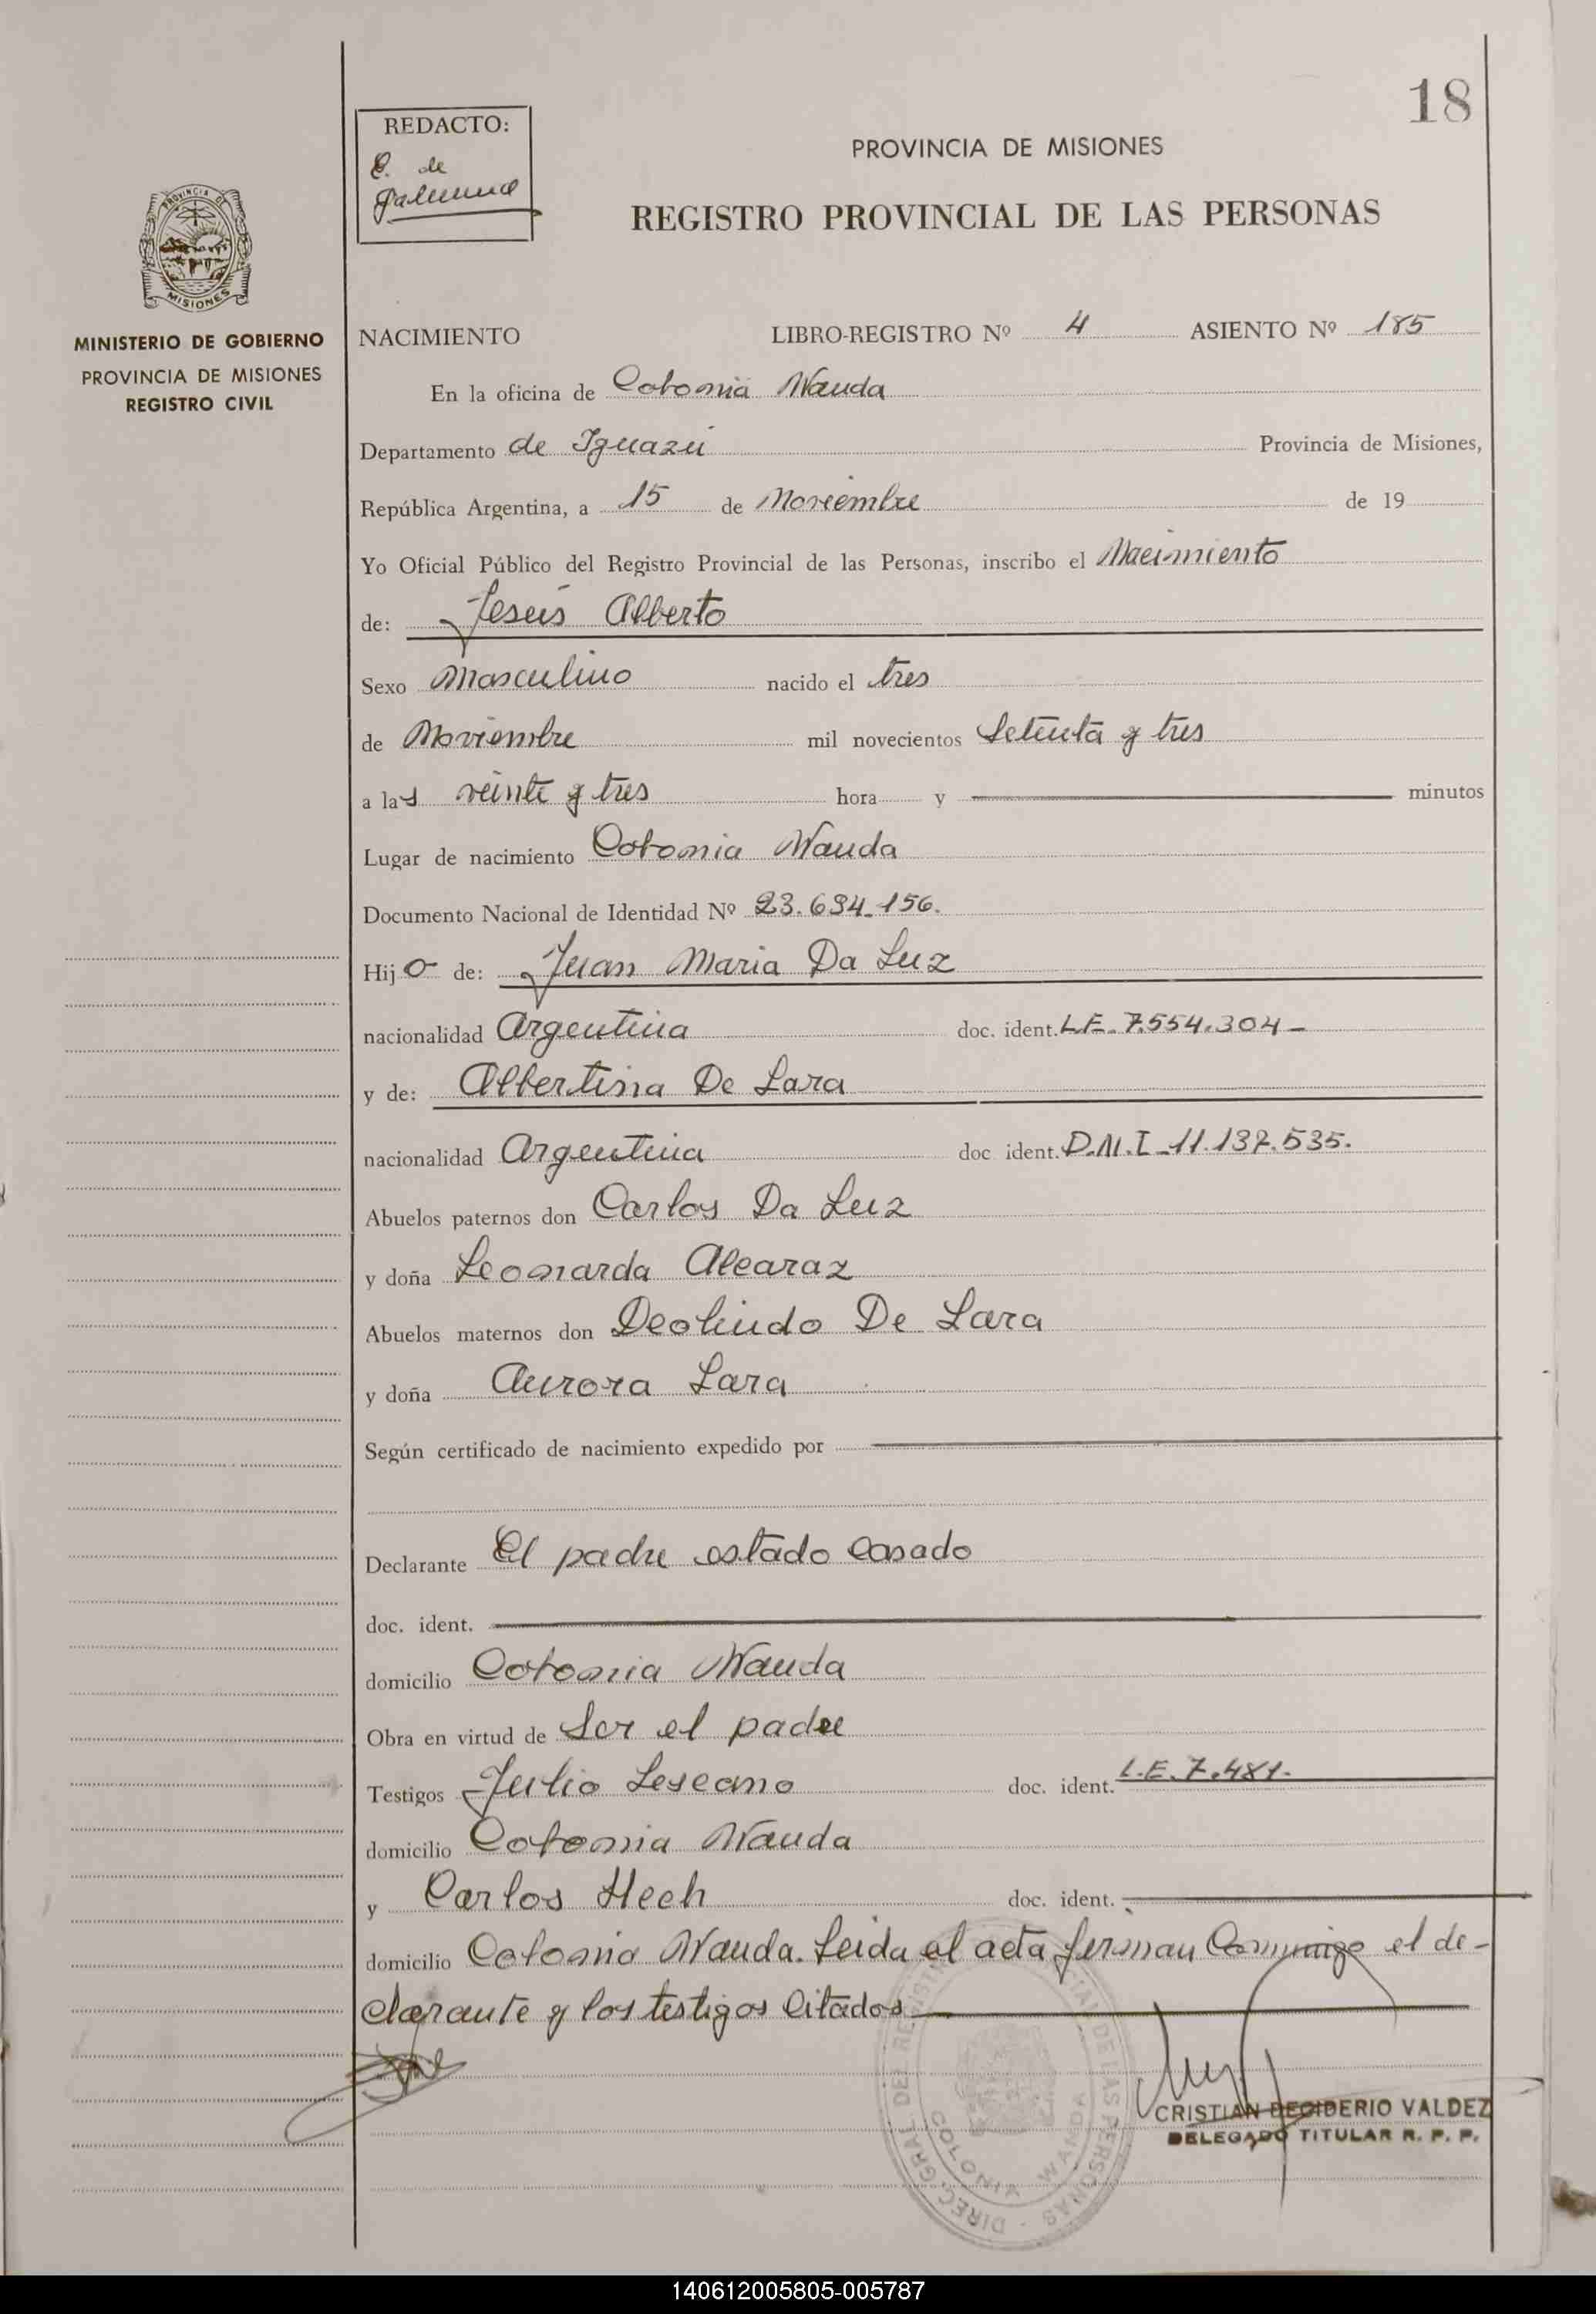 18
REDACTO:
E. de
PROVINCIA DE MISIONES
REGISTRO PROVINCIAL DE LAS PERSONAS
PROVINCIA DE
MISIONES
MINISTERIO DE GOBIERNO
PROVINCIA DE MISIONES
REGISTRO CIVIL
NACIMIENTO LIBRO-REGISTRO Nº 4 ASIENTO Nº 185
En la oficina de Colonia Wanda
Departamento de Iguazú Provincia de Misiones,
República Argentina, a 15 de Noviembre de 19
Yo Oficial Público del Registro Provincial de las Personas, inscribo el Nacimiento
de: Jesús Alberto
Sexo Masculino nacido el tres
de Noviembre mil novecientos Setenta y tres
a las veinte y tres hora y minutos
Lugar de nacimiento Colonia Wanda
Documento Nacional de Identidad Nº 23.694.156.
Hijo de: Juan Maria Da Luz
nacionalidad Argentina doc. ident. L.E. 7.554.304-
y de: Albertina De Lara
nacionalidad Argentina doc ident. D.N.I-11.137.535.
Abuelos paternos don Carlos Da Luz
y doña Leonarda Alcaraz
Abuelos maternos don Deolindo De Lara
y doña Aurora Lara
Según certificado de nacimiento expedido por
Declarante El padre estado Casado
doc. ident.
domicilio Colonia Wanda
Obra en virtud de Ser el padre
Testigos Julio Lescano doc. ident. L.E. 7.481.
domicilio Colonia Wanda
y Carlos Hech doc. ident.
domicilio Colonia Wanda. Leida el acta firman Conmigo el de-
clarante y los testigos Citados
DIREC. GRAL DEL REGISTRO PROVINCIAL DE LAS PERSONAS
COLONIA WANDA
CRISTIAN DECIDERIO VALDEZ
DELEGADO TITULAR R. P. P.
140612005805-005787